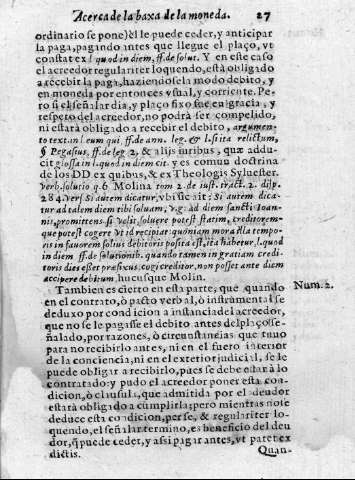 Acerca de la baxa de la moneda. 27
ordinario se pone) èl le puede ceder, y anticipar
la paga, pagando antes que llegue el plaço, vt
constat ex l. quod in diem, ff. de solut. Y en este caso
el acreedor regulariter loquendo, està obligado
a recebir la paga, haziendosela modo debito, y
en moneda por entonces vsual, y corriente. Pe-
ro si el señalar dia, y plaço fixo fue en gracia, y
respeto del acreedor, no podrà ser compelido,
ni estarà obligado a recebir el debito, argumen-
to text. in l. eum qui, ff. de ann. leg. & l. si ita relictum,
§ Pegasus, ff. de leg. 2. & alijs iuribus, quæ addu-
cit glossa in l. quod in diem cit. y es comun doctrina
de los DD ex quibus, & ex Theologis Syluester.
verb. solutio q. 6 Molina tom. 2. de iust. tract. 2. disp.
284. vers. Si autem dicatur, vbi sic ait: Si autem dica-
tur ad talem diem tibi soluam, v. g. ad diem sancti Ioan-
nis, promittens, si velit, soluere potest statim, creditorem-
que potest cogere vt id recipiat: quoniam mora illa tempo-
ris in fauorem solius debitoris posita est, ita habetur, l. quod
in diem ff. de solutionib. quando tamen in gratiam credi-
toris dies esset præfixus, cogi creditor non posset ante diem
accipere debitum, hucusque Molin.
Tambien es cierto en esta parte, que quando Num. 2.
en el contrato, ò pacto verbal, ò instrumental se
deduxo por condicion a instancia del acreedor,
que no se le pagasse el debito antes del plaço se-
ñalado, por razones, ò circunstancias que tuuo
para no recibirlo antes, ni en el fuero interior
de la conciencia, ni en el exterior judicial, se le
puede obligar a recibirlo, pues se debe estar à lo
contratado: y pudo el acreedor poner esta con-
dicion, ò clausula, que admitida por el deudor
estarà obligado a cumplirla; pero mientras no se
deduce esta condicion, per se, & regulariter lo-
quendo, el señalar termino, es beneficio del deu
dor, q̃ puede ceder, y assi pagar antes, vt patet ex
dictis.
Quan-